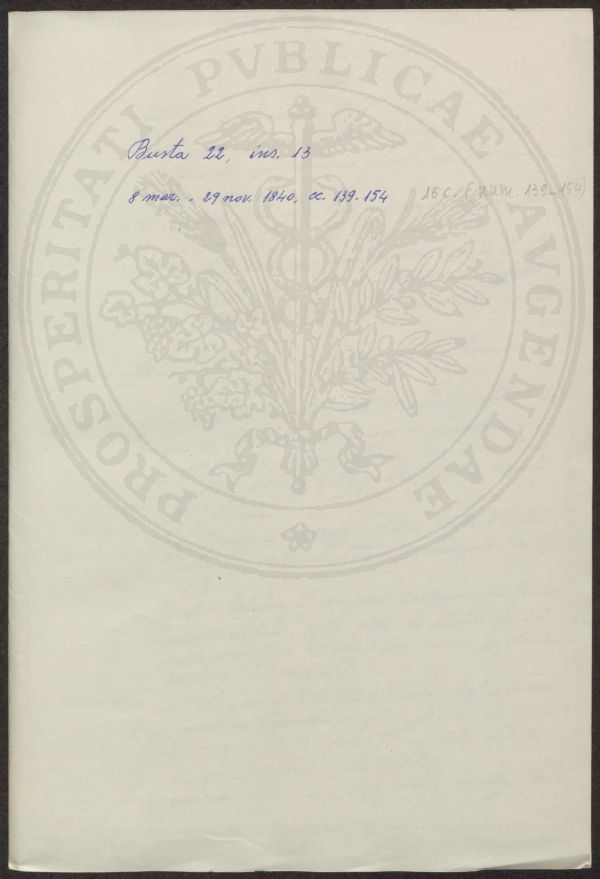 PROSPERITATI PVBLICAE AVGENDAE
Busta 22, ins. 13
8 mar. - 29 nov. 1840, cc. 139-154 16 c. (num. 139-154)